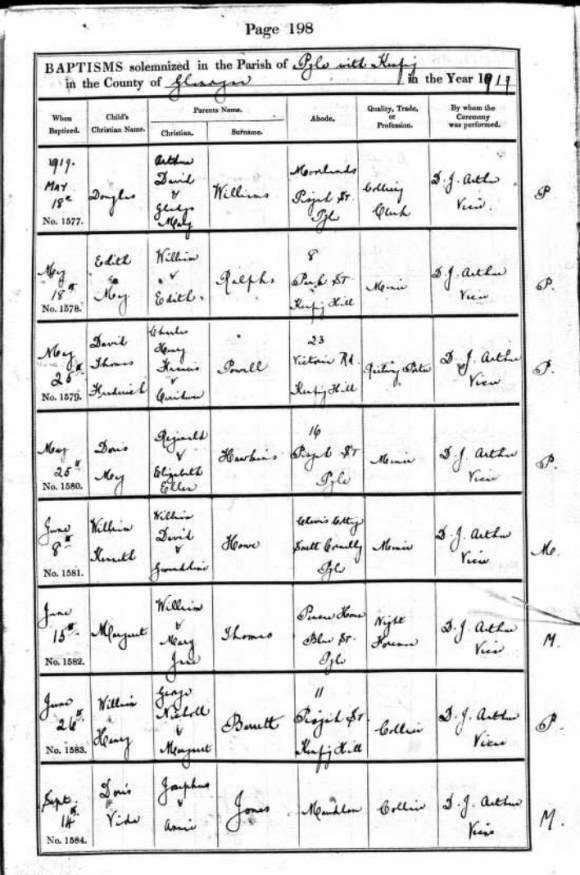 Page 198
BAPTISMS solemnized in the Parish of Pyle with Kenfig
in the County of Glamorgan in the Year 1919
When Baptized.
Child's Christian Name.
Parents Name.
Christian.
Surname.
Abode.
Quality, Trade, or Profession.
By whom the Ceremony was performed.
1919.
May
18th
No. 1577.
Douglas
Arthur
David
&
Gladys
Mary
Williams
Pyle
Colliery
Clerk
D. J. Arthur
Vicar
P
May
18th
No. 1578.
Edith
May
William
&
Edith
Ralphs
8
Park St
Kenfig Hill
Miner
D. J. Arthur
Vicar
P.
May
25th
No. 1579.
David
Thomas
Frederick
Charles
Henry
Francis
&
Powell
23
Victoria Rd
Kenfig Hill
D. J. Arthur
Vicar
P.
May
25th
No. 1580.
Doris
May
Reginald
&
Elizabeth
Ellen
Hawkins
16
St
Pyle
Miner
D. J. Arthur
Vicar
P.
June
8th
No. 1581.
William
Kenneth
William
David
&
Gwendoline
Howe
South Cornelly
Pyle
Miner
D. J. Arthur
Vicar
M.
June
15th
No. 1582.
Margaret
William
&
Mary
Jane
Thomas
St.
Pyle
Night
Foreman
D. J. Arthur
Vicar
M.
June
26th
No. 1583.
William
Henry
George
Nicholl
&
Margaret
Barrett
11
St
Kenfig Hill
Collier
D. J. Arthur
Vicar
P.
Sept
14th
No. 1584.
Doris
Vida
Josephus
&
Annie
Jones
Collier
D. J. Arthur
Vicar
M.